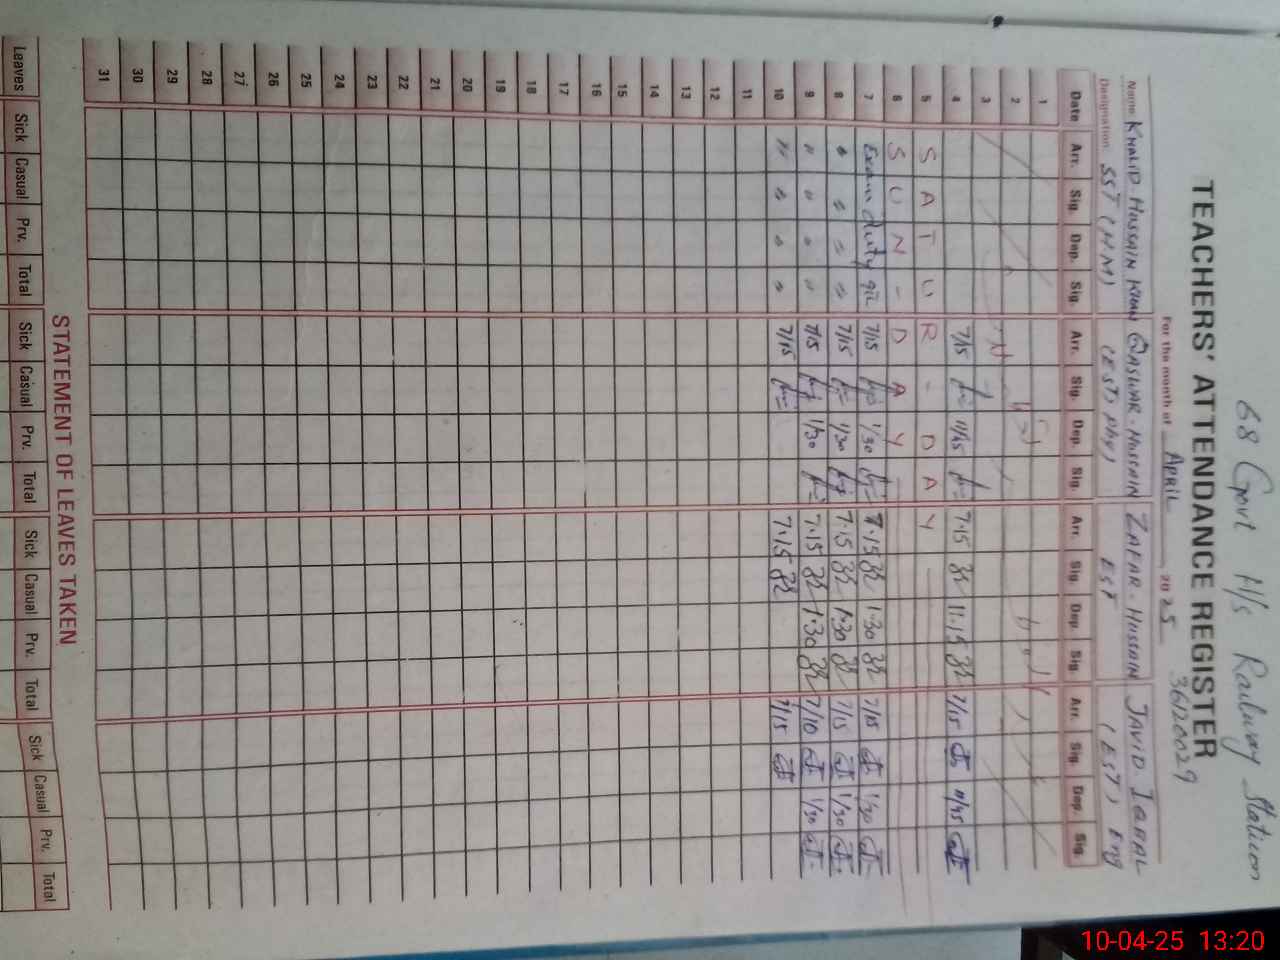 68 Govt H/s Railway Station
36120029
TEACHERS' ATTENDANCE REGISTER
For the month of April 2025
Name KHALID. HUSSAIN KHAN QASWAR. HUSSAIN ZAFAR. HUSSAIN JAVID. IQBAL
Designation SST (HM) (EST) Phy) EST (EST) Eng
Date Arr. Sig. Dep. Sig. Arr. Sig. Dep. Sig. Arr. Sig. Dep. Sig. Arr. Sig. Dep. Sig.
1
2
3
4 7/15 11/45 7.15 11.15 7/15 11/45
5 S A T U R - D A Y
6 S U N - D A Y
7 Exam duty 7/15 1/30 7.15 1.30 7/15 1/30
8 " " " " 7/15 1/30 7.15 1.30 7/15 1/30
9 " " " " 7/15 1/30 7.15 1.30 7/10 1/30
10 " " " " 7/15 7.15 7/15
11
12
13
14
15
16
17
18
19
20
21
22
23
24
25
26
27
28
29
30
31
STATEMENT OF LEAVES TAKEN
Leaves Sick Casual Prv. Total Sick Casual Prv. Total Sick Casual Prv. Total Sick Casual Prv. Total
10-04-25 13:20